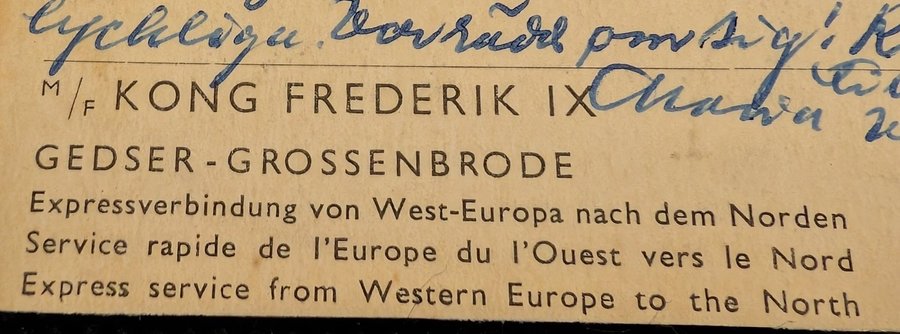 lyckliga. Var rädd om sig! K
M/F KONG FREDERIK IX
GEDSER - GROSSENBRODE
Expressverbindung von West-Europa nach dem Norden
Service rapide de l'Europe du l'Ouest vers le Nord
Express service from Western Europe to the North